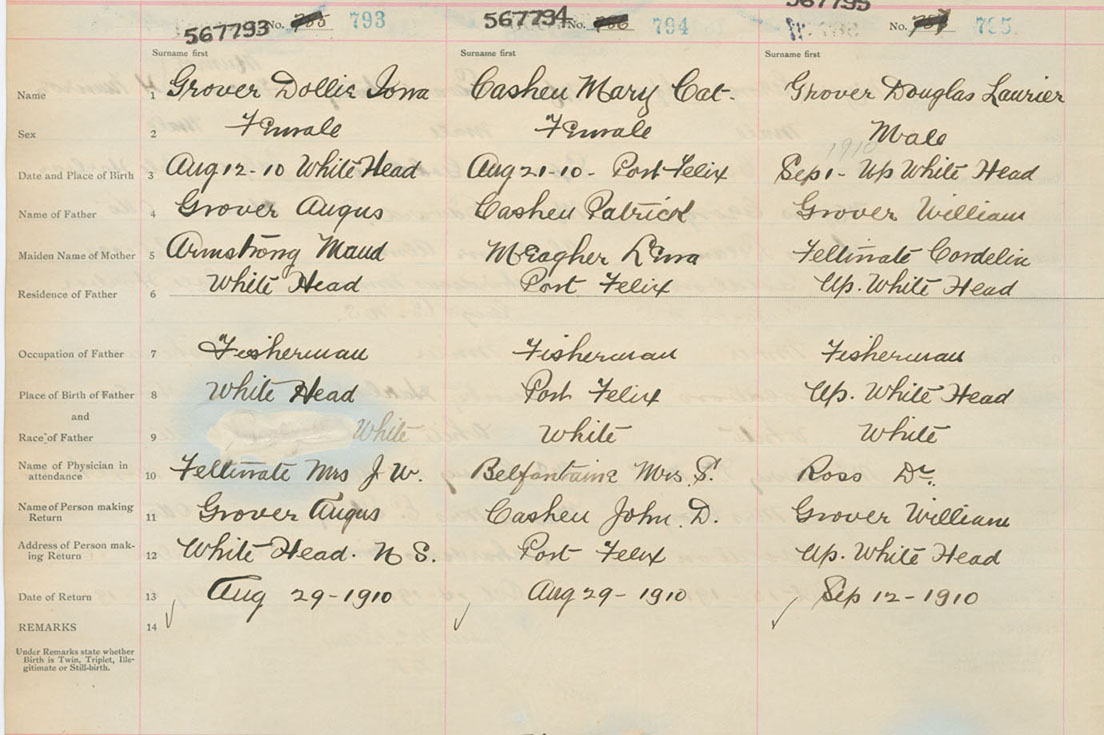 567793 No. 735 793 567794 No. 736 794 567795 No. 737 795
Surname first Surname first Surname first
Name 1 Grover Dollie Iona Casheu Mary Cat. Grover Douglas Laurier
Sex 2 Female Female Male
1910
Date and Place of Birth 3 Aug 12-10 White Head Aug 21-10- Port Felix Sep 1- Up White Head
Name of Father 4 Grover Angus Casheu Patrick Grover William
Maiden Name of Mother 5 Armstrong Maud Meagher Lena Feltmate Cordelia
Residence of Father 6 White Head Port Felix Up. White Head
Occupation of Father 7 Fisherman Fisherman Fisherman
Place of Birth of Father 8 White Head Port Felix Up. White Head
and
Race of Father 9 White White White
Name of Physician in
attendance 10 Feltmate Mrs J. W. Belfontaine Mrs. S. Ross Dr.
Name of Person making
Return 11 Grover Angus Casheu John. D. Grover William
Address of Person mak-
ing Return 12 White Head. N S. Port Felix Up. White Head
Date of Return 13 Aug 29-1910 Aug 29-1910 Sep 12-1910
REMARKS 14
Under Remarks state whether
Birth is Twin, Triplet, Ille-
gitimate or Still-birth.